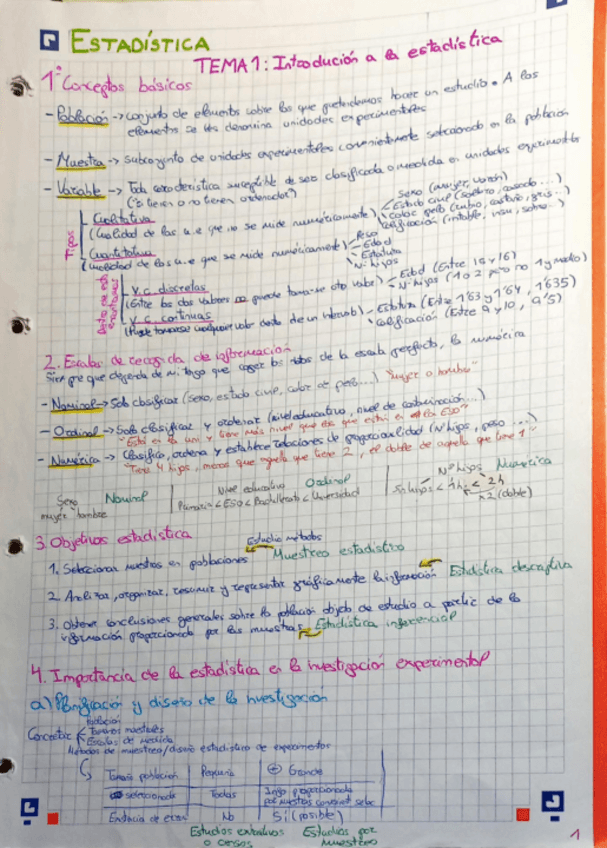 ESTADÍSTICA
TEMA 1: Introdución a la estadística
1º Conceptos básicos
- Población -> conjunto de elementos sobre los que pretendemos hacer un estudio. A los
elementos se les denomina unidades experimentales
- Muestra -> Subconjunto de unidades experimentales convenientemente seleccionado en la población
- Variable -> Toda característica susceptible de ser clasificada o medida en unidades experimentales
(o tienen o no tienen ordenador)
Tipos
Cualitativa
(Cualidad de las u.e que no se mide numéricamente)
Sexo (mujer, varón)
Estado civil (soltero, casado...)
Color pelo (rubio, castaño, gris..)
Calificación (notable, insu, sobre..)
Cuantitativa
(Cualidad de las u.e que se mide numéricamente)
Peso
Edad
Estatura
Nº hijos
v.c. discretas
(Entre los dos valores no puede tomarse otro valor)
Edad (Entre 15 y 16)
Nº hijos (1 o 2 pero no 1 y medio)
v.c. continuas
(Puede tomarse cualquier valor dentro de un intervalo)
Estatura (Entre 1'63 y 1'64, 1'635)
Calificación (Entre 9 y 10, 9'5)
2. Escalas de recogida de información
Siempre que dependa de mi tengo que coger los datos de la escala perfecta, la numérica
- Nominal -> Solo clasificar (sexo, estado civil, color de pelo...) "mujer o hombre"
- Ordinal -> Solo clasificar y ordenar (nivel educativo, nivel de contaminación...)
"Está en la uni y tiene más nivel que los que están en la ESO"
- Numérica -> Clasifica, ordena y establece relaciones de proporcionalidad (Nº hijos, peso ...)
"Tiene 4 hijos, más que aquella que tiene 2, el doble de aquella que tiene 1"
Sexo Nominal
mujer hombre
Nivel educativo Ordinal
Primaria < ESO < Bachillerato < Universidad
Nº hijos Numérica
Sin hijos < 1h < 2h
x2 (doble)
3. Objetivos estadística
1. Seleccionar muestras en poblaciones
Estudia métodos
Muestreo estadístico
2. Analizar, organizar, resumir y representar gráficamente la información Estadística descriptiva
3. Obtener conclusiones generales sobre la población objeto de estudio a partir de la
información proporcionada por las muestras Estadística inferencial
4. Importancia de la estadística en la investigación experimental
a) Planificación y diseño de la investigación
Concretar
Población
Tamaños muestrales
Escalas de medida
Métodos de muestreo/diseño estadístico de experimentos
Tamaño población | Pequeña | + Grande
seleccionada | Todas | Info proporcionada
por muestras convenient selec
Existencia de error | No | Sí (posible)
Estudios exhaustivos
o censos
Estudios por
muestreo
1